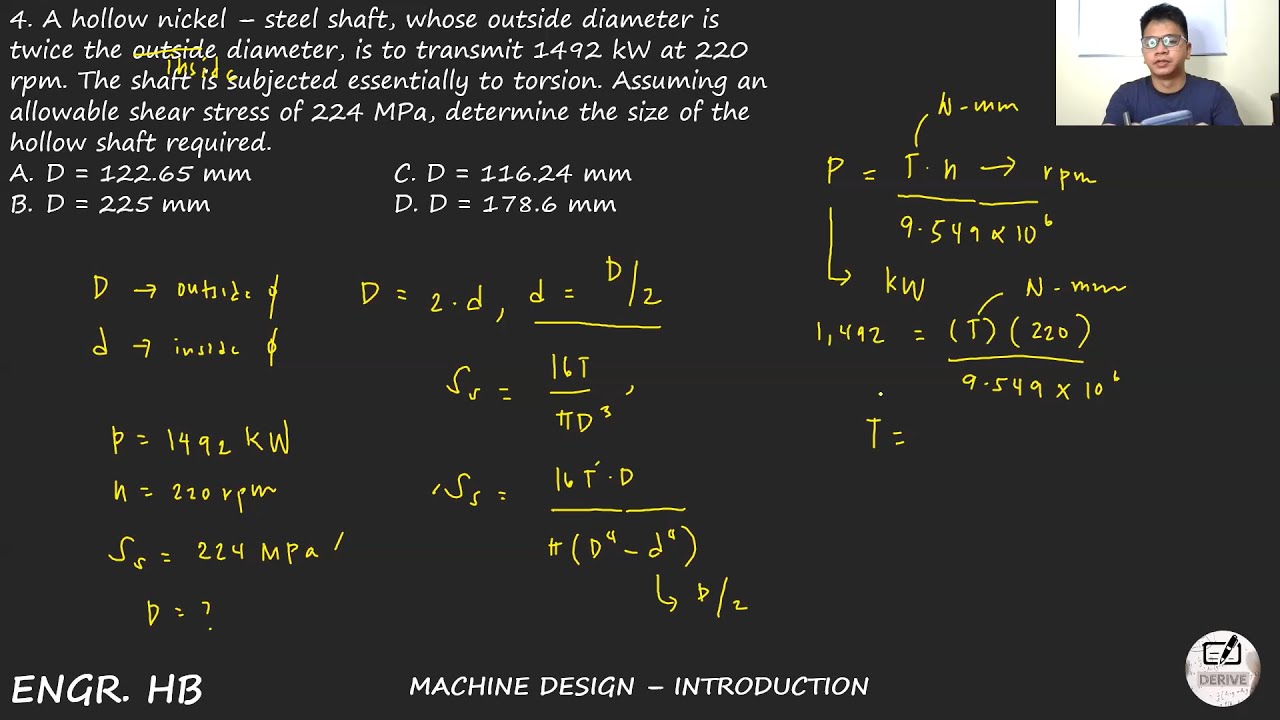 4. A hollow nickel – steel shaft, whose outside diameter is
twice the outside diameter, is to transmit 1492 kW at 220
inside
rpm. The shaft is subjected essentially to torsion. Assuming an
allowable shear stress of 224 MPa, determine the size of the
hollow shaft required.
A. D = 122.65 mm
C. D = 116.24 mm
B. D = 225 mm
D. D = 178.6 mm
D → outside ϕ
d → inside ϕ
P = 1492 kW
n = 220 rpm
Ss = 224 MPa
D = ?
D = 2·d, d = D/2
Ss = 16T / πD³,
Ss = 16T·D / π(D⁴ – d⁴)
↳ D/2
N-mm
P = T·n → rpm
9.549 x 10⁶
↳ kW
N-mm
1,492 = (T)(220)
9.549 x 10⁶
T =
ENGR. HB
MACHINE DESIGN – INTRODUCTION
DERIVE